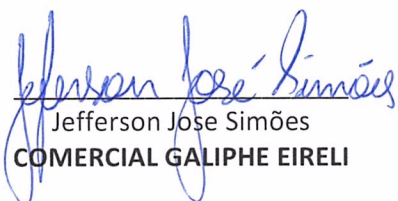 Jefferson José Simões
Jefferson Jose Simões
COMERCIAL GALIPHE EIRELI